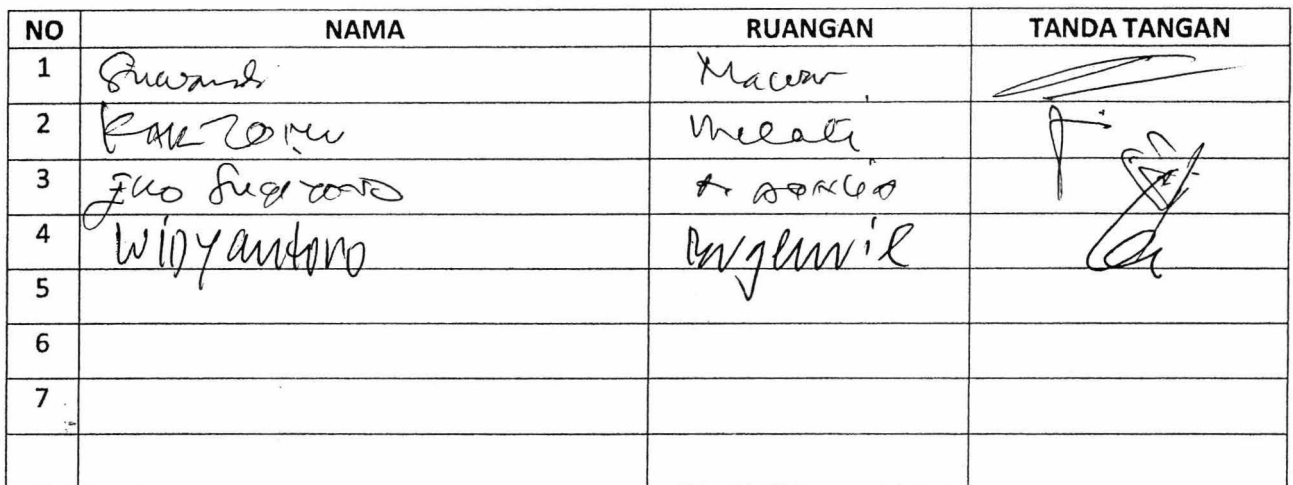 NO NAMA RUANGAN TANDA TANGAN
1 Suwandi Mawar
2 Melati
3 Eko Sugiyanto
4 Widyantoro Bugenvil
5
6
7